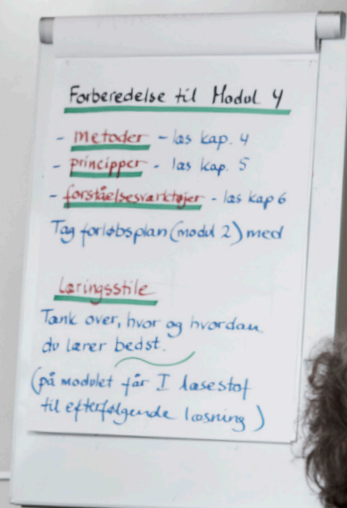 Forberedelse til Modul 4
- metoder - læs kap. 4
- principper - læs kap. 5
- forståelsesværktøjer - læs kap 6
Tag forløbsplan (modul 2) med
Læringsstile
Tænk over, hvor og hvordan
du lærer bedst.
(på modulet får I læsestof
til efterfølgende læsning)